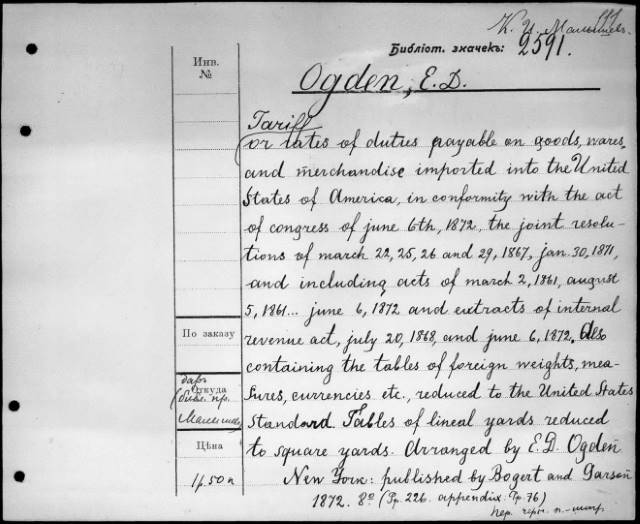 К. И. Малышев.
Библіот. значекъ: 2591.
Инв.
№
Ogden, E. D.
Tariff
or rates of duties payable on goods, wares,
and merchandise imported into the United
States of America, in conformity with the act
of congress of june 6th, 1872, the joint resolu-
tions of march 22, 25, 26 and 29, 1867, jan. 30, 1871,
and including acts of march 2, 1861, august
5, 1861... june 6, 1872 and extracts of internal
revenue act, july 20, 1868, and june 6, 1872. Also
containing the tables of foreign weights, mea-
sures, currencies etc., reduced to the United States
Standard. Tables of lineal yards reduced
to square yards. Arranged by E. D. Ogden
New York: published by Bogert and
1872. 8° (Pp. 226. appendix: Pp. 76)
По заказу
даръ
Откуда
Цѣна